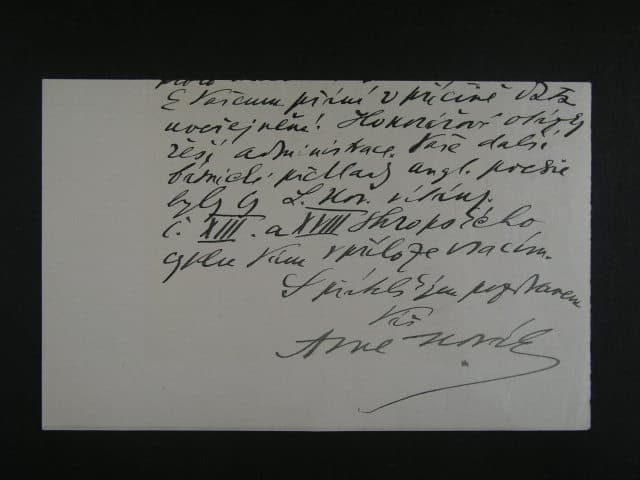 K Vašemu přání v příčině
uveřejnění. Honorářové otázky
řeší administrace. Vaše další
básnické překlady angl. poesie
byly by L. Nov. vítány.
č. XIII. a XVIII Shropského
cyklu Vám v příloze vracím.
S přátelským pozdravem
Váš
Arne Novák